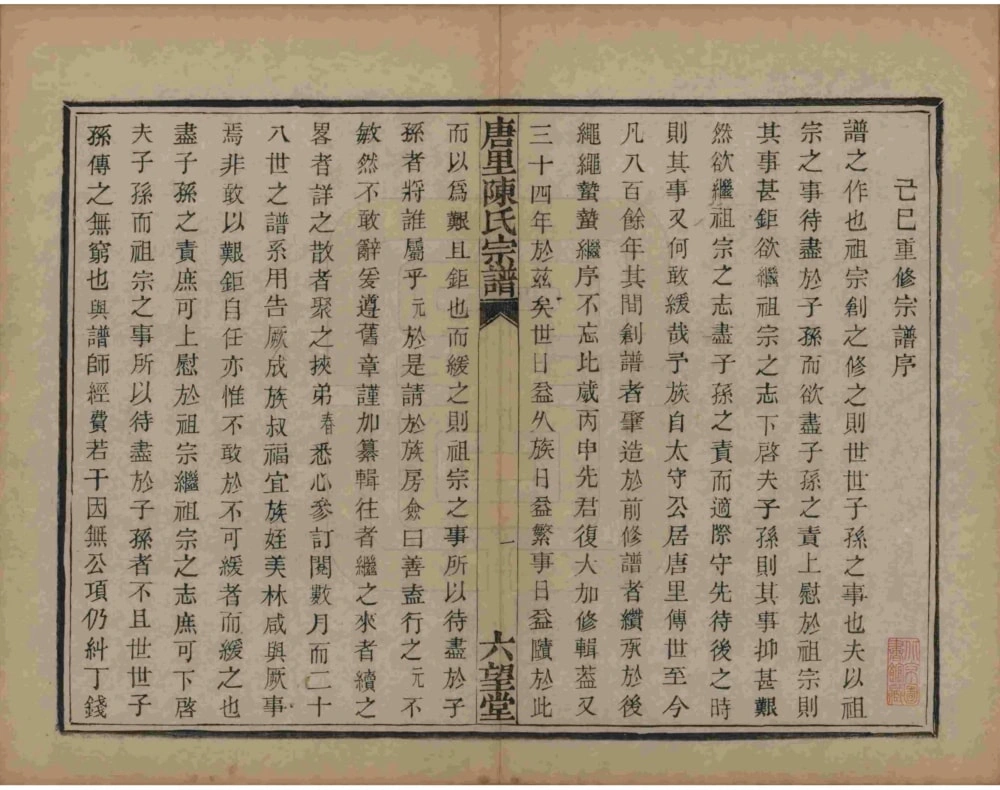 己巳重修宗譜序
譜之作也祖宗創之修之則世世子孫之事也夫以祖
宗之事待盡於子孫而欲盡子孫之責上慰於祖宗則
其事甚鉅欲繼祖宗之志下啓夫子孫則其事抑甚艱
然欲繼祖宗之志盡子孫之責而適際守先待後之時
則其事又何敢緩哉予族自太守公居唐里傳世至今
凡八百餘年其間創譜者肇造於前修譜者纘承於後
繩繩蟄蟄繼序不忘比歲丙申先君復大加修輯葢又
三十四年於茲矣世日益久族日益繁事日益賾於此
唐里陳氏宗譜
一
六望堂
而以爲艱且鉅也而緩之則祖宗之事所以待盡於子
孫者將誰屬乎元於是請於族房僉曰善盍行之元不
敏然不敢辭爰遵舊章謹加纂輯往者繼之來者續之
畧者詳之散者聚之挾弟春悉心參訂閱數月而二十
八世之譜系用告厥成族叔福宜族姪美林咸與厥事
焉非敢以艱鉅自任亦惟不敢於不可緩者而緩之也
盡子孫之責庶可上慰於祖宗繼祖宗之志庶可下啓
夫子孫而祖宗之事所以待盡於子孫者不且世世子
孫傳之無窮也與譜師經費若干因無公項仍糾丁錢